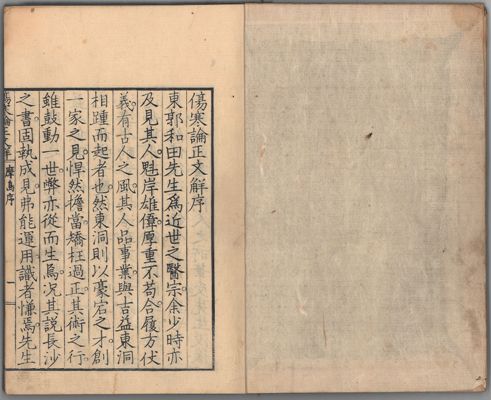 傷寒論正文解序
東郭和田先生爲近世之醫宗余少時亦
及見其人魁岸雄偉厚重不苟合履方伏
義有古人之風其人品事業與吉益東洞
相踵而起者也然東洞則以豪宕之才創
一家之見悍然擔當矯枉過正其術之行
雖鼓動一世弊亦從而生焉况其說長沙
之書固執成見弗能運用識者慊焉先生
傷寒論正文解 序 一